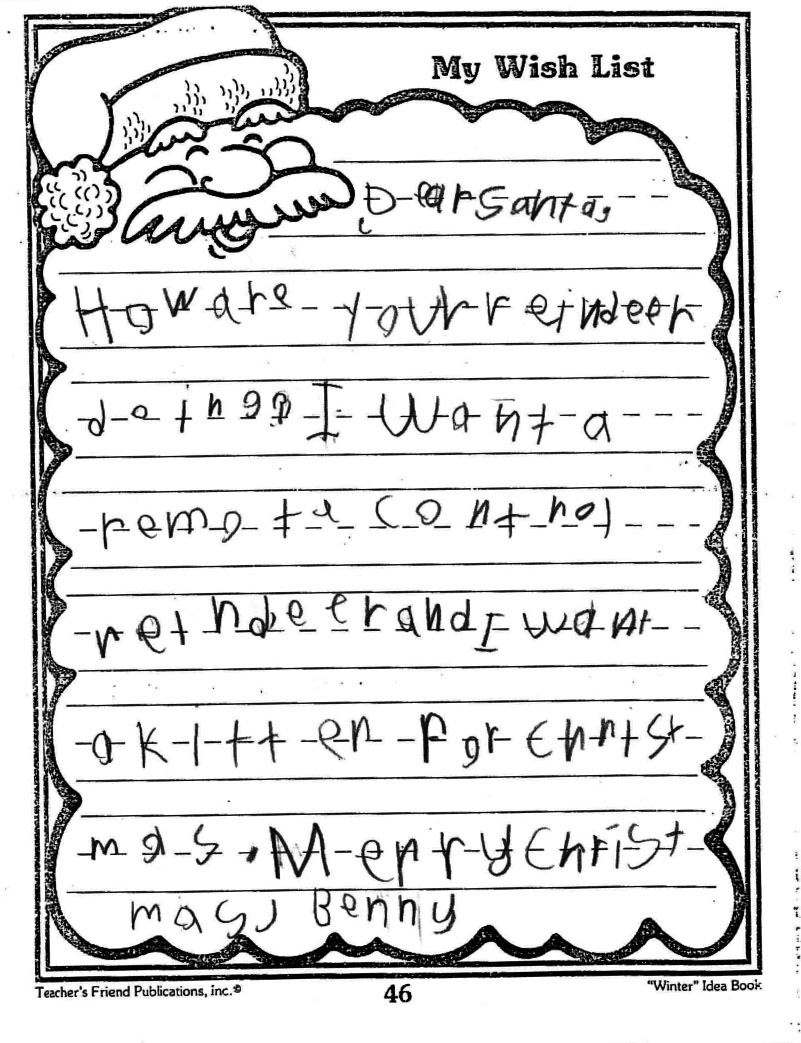 My Wish List
Dear Santa,
How are your reindeer
doing? I want a
remote control
reindeer and I want
a kitten for Christ
mas. Merry Christ
mas, Benny
Teacher's Friend Publications, inc.©
46
"Winter" Idea Book